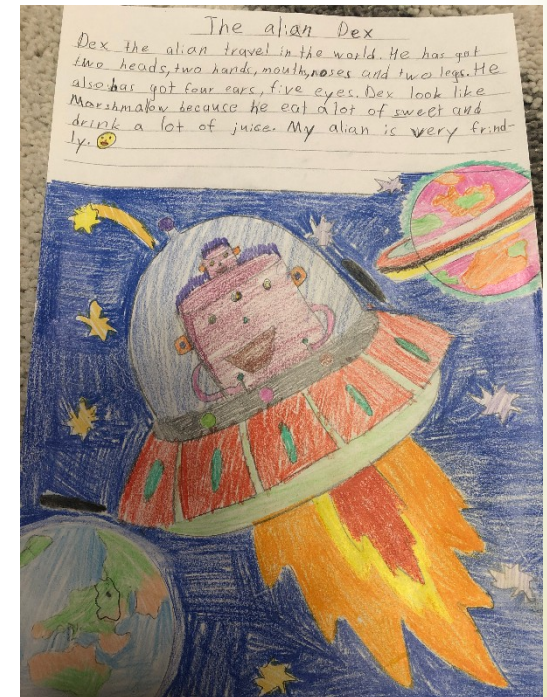 The alian Dex
Dex the alian travel in the world. He has got
two heads, two hands, mouth, noses and two legs. He
also has got four ears, five eyes. Dex look like
Marshmalow because he eat a lot of sweet and
drink a lot of juice. My alian is very frind-
ly.